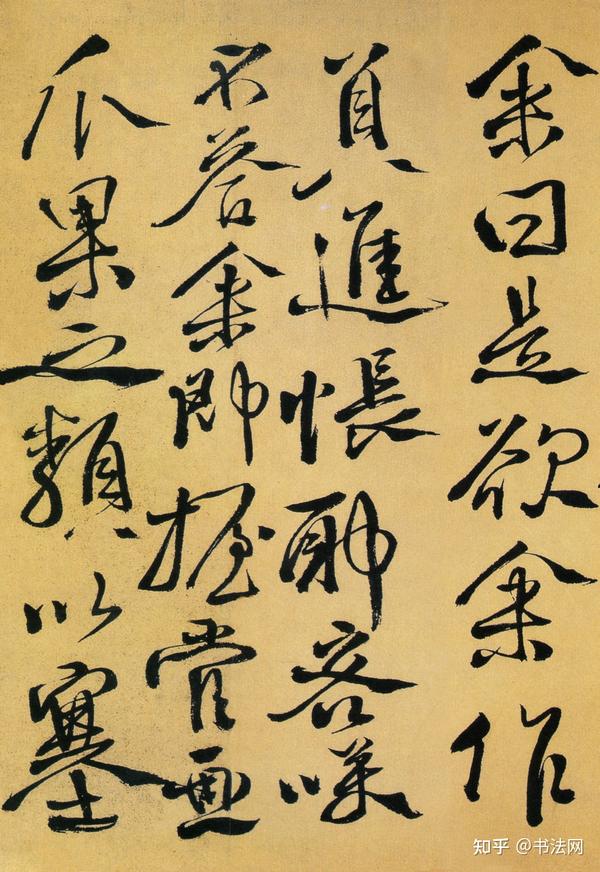 余曰是欲余作
員進帳耶客咲
不答余即握管画
瓜果之類以塞
知乎 @书法网